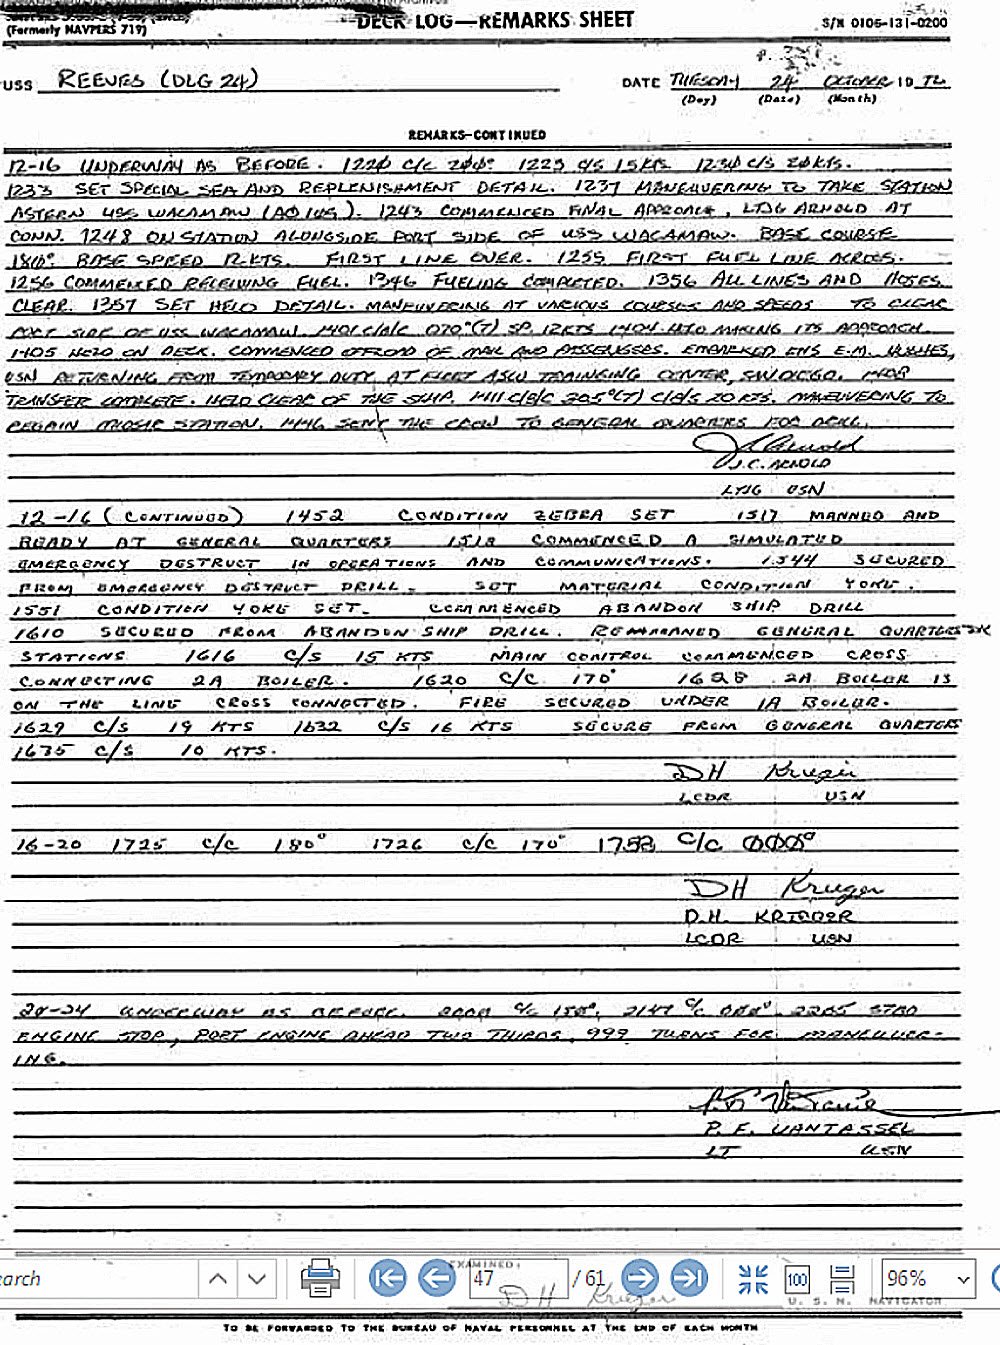 (Formerly NAVPERS 719)
DECK LOG—REMARKS SHEET
S/N 0105-131-0200
USS REEVES (DLG 24)
DATE TUESDAY 24 OCTOBER 19 72
(Day) (Date) (Month)
REMARKS—CONTINUED
12-16 UNDERWAY AS BEFORE. 1220 C/C 200° 1223 C/S 15 KTS 1230 C/S 20 KTS.
1233 SET SPECIAL SEA AND REPLENISHMENT DETAIL. 1237 MANEUVERING TO TAKE STATION
ASTERN USS WACAMAW (AO 105). 1243 COMMENCED FINAL APPROACH, LTJG ARNOLD AT
CONN. 1248 ON STATION ALONGSIDE PORT SIDE OF USS WACAMAW. BASE COURSE
180° BASE SPEED 12 KTS. FIRST LINE OVER. 1255 FIRST FUEL LINE ACROSS.
1256 COMMENCED RECEIVING FUEL. 1346 FUELING COMPLETED. 1356 ALL LINES AND HOSES
CLEAR. 1357 SET HELO DETAIL. MANEUVERING AT VARIOUS COURSES AND SPEEDS TO CLEAR
PORT SIDE OF USS WACAMAW. 1401 C/B/C 070°(T) SP 12 KTS 1404 HELO MAKING ITS APPROACH.
1405 HELO ON DECK. COMMENCED OFFLOAD OF MAIL AND PASSENGERS. EMBARKED ENS E.M. HUGHES,
USN RETURNING FROM TEMPORARY DUTY AT FLEET ASW TRAINGING CENTER, SANDIEGO.
TRANSFER COMPLETE. HELO CLEAR OF THE SHIP. 1411 C/B/C 205°(T) C/B/S 20 KTS. MANEUVERING TO
REGAIN STATION. 1446 SENT THE CREW TO GENERAL QUARTERS FOR DRILL.
J.C. ARNOLD
LTJG USN
12-16 (CONTINUED) 1452 CONDITION ZEBRA SET 1517 MANNED AND
READY AT GENERAL QUARTERS 1518 COMMENCED A SIMULATED
EMERGENCY DESTRUCT IN OPERATIONS AND COMMUNICATIONS. 1544 SECURED
FROM EMERGENCY DESTRUCT DRILL. SET MATERIAL CONDITION YOKE.
1551 CONDITION YOKE SET. COMMENCED ABANDON SHIP DRILL
1610 SECURED FROM ABANDON SHIP DRILL. REMANNED GENERAL QUARTERS
STATIONS 1616 C/S 15 KTS MAIN CONTROL COMMENCED CROSS
CONNECTING 2A BOILER. 1620 C/C 170° 1628 2A BOILER IS
ON THE LINE CROSS CONNECTED. FIRE SECURED UNDER 1A BOILER.
1629 C/S 19 KTS 1632 C/S 16 KTS SECURE FROM GENERAL QUARTERS
1635 C/S 10 KTS.
DH Kruger
LCDR USN
16-20 1725 C/C 180° 1726 C/C 170° 1752 C/C 000°
DH Kruger
D.H. KRUGER
LCDR USN
20-24 UNDERWAY AS BEFORE. 2000 C/C 150°, 2147 C/C 000°. 2205 STBD
ENGINE STOP, PORT ENGINE AHEAD TWO THIRDS, 999 TURNS FOR MANEUVER-
ING.
P. E. VANTASSEL
LT USN
EXAMINED:
earch 47 / 61 100 96%
DH Kruger
U. S. N. NAVIGATOR
TO BE FORWARDED TO THE BUREAU OF NAVAL PERSONNEL AT THE END OF EACH MONTH